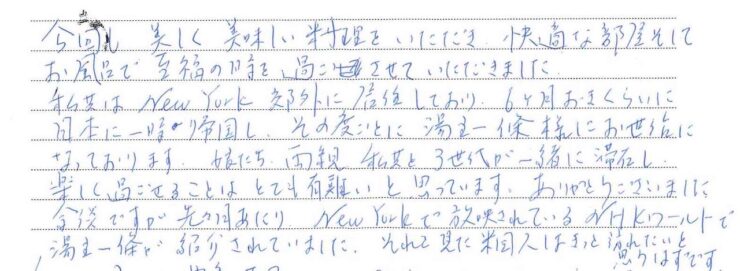 今回も 美しく 美味しい料理をいただき 快適な部屋そして
お風呂で至福の時を過ごさせていただきました
私共は New York 郊外に居住しており、6ヶ月おきくらいに
日本に一時帰国し、その度ごとに 湯主一條様にお世話に
なっております。娘たち、両親 私共と3世代が一緒に滞在し
楽しく過ごせることはとても有難いと思っています。ありがとうございました
余談ですが先月あたり、New Yorkで放映されているNHKワールドで
湯主一條が紹介されていました。それを見た米国人はきっと訪れたいと
思うはずです